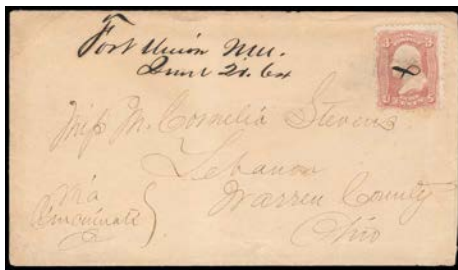 Fort Union NM.
June 21. 64
3 3
U S
Miss M. Cornelia Stevens
Lebanon
Warren County
Ohio
Via
Cincinnati